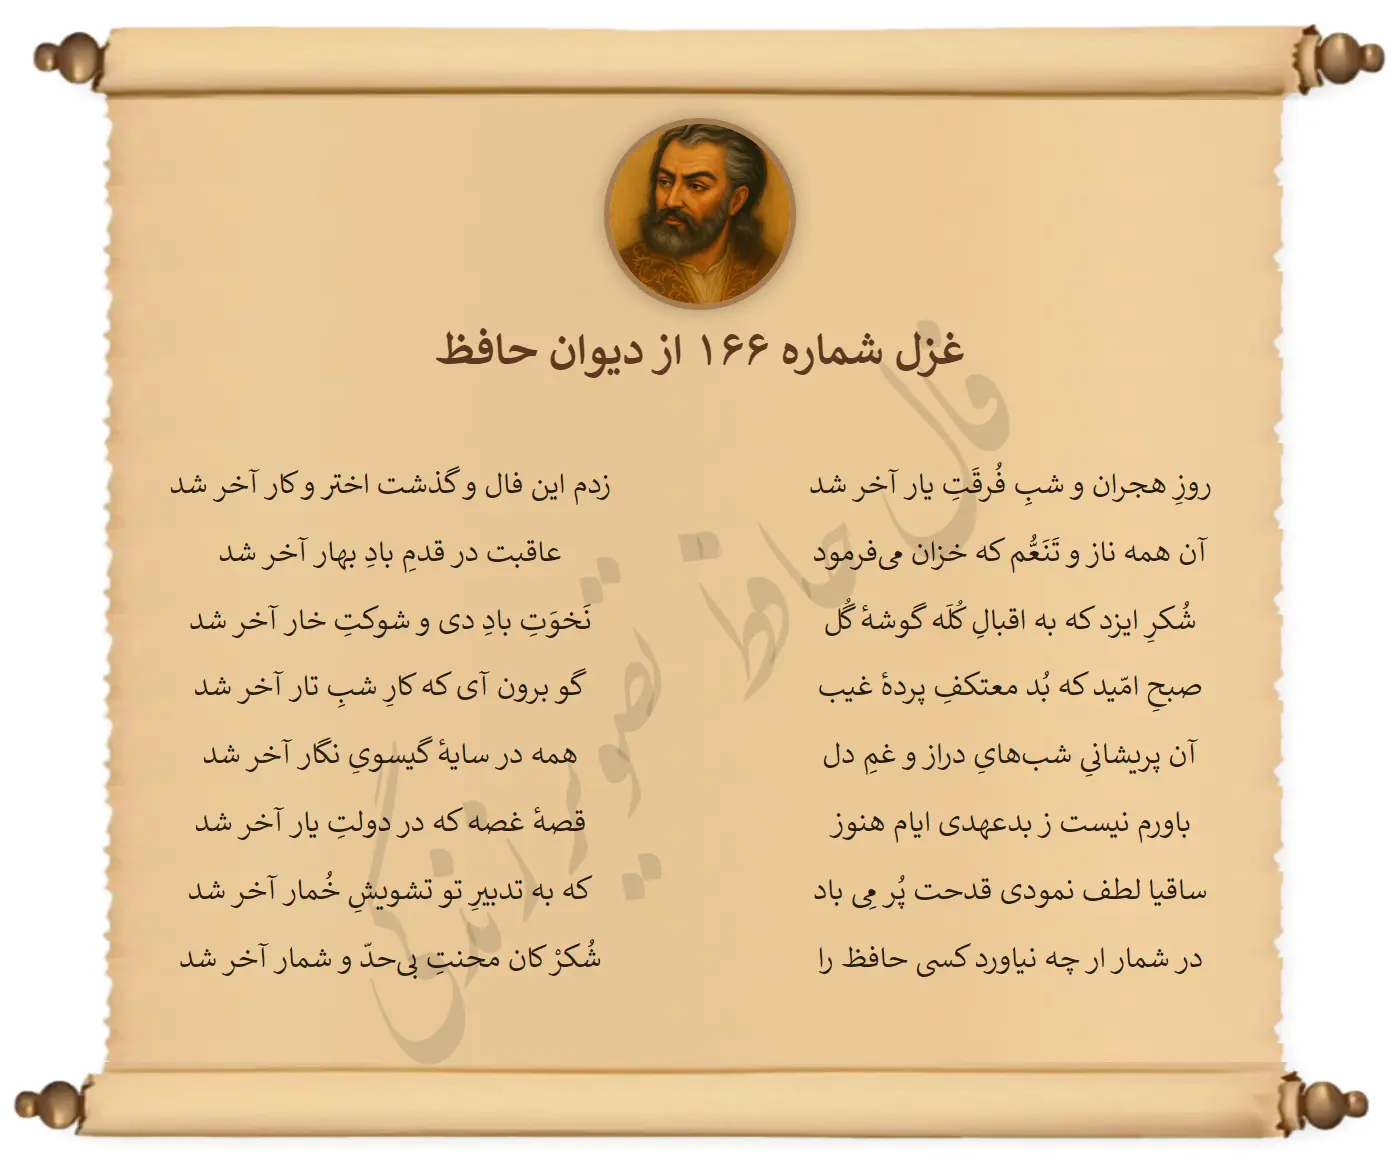 غزل شماره ۱۶۶ از دیوان حافظ
روزِ هجران و شبِ فُرقَتِ یار آخر شد
زدم این فال و گذشت اختر و کار آخر شد
آن همه ناز و تَنَعُّم که خزان می‌فرمود
عاقبت در قدمِ بادِ بهار آخر شد
شُکرِ ایزد که به اقبالِ کُلَه گوشهٔ گُل
نَخوَتِ بادِ دی و شوکتِ خار آخر شد
صبحِ امّید که بُد معتکفِ پردهٔ غیب
گو برون آی که کارِ شبِ تار آخر شد
آن پریشانیِ شب‌هایِ دراز و غمِ دل
همه در سایهٔ گیسویِ نگار آخر شد
باورم نیست ز بدعهدی ایام هنوز
قصهٔ غصه که در دولتِ یار آخر شد
ساقیا لطف نمودی قدحت پُر مِی باد
که به تدبیرِ تو تشویشِ خُمار آخر شد
در شمار ار چه نیاورد کسی حافظ را
شُکرْ کان محنتِ بی‌حدّ و شمار آخر شد
فال حافظ تصویر زندگی